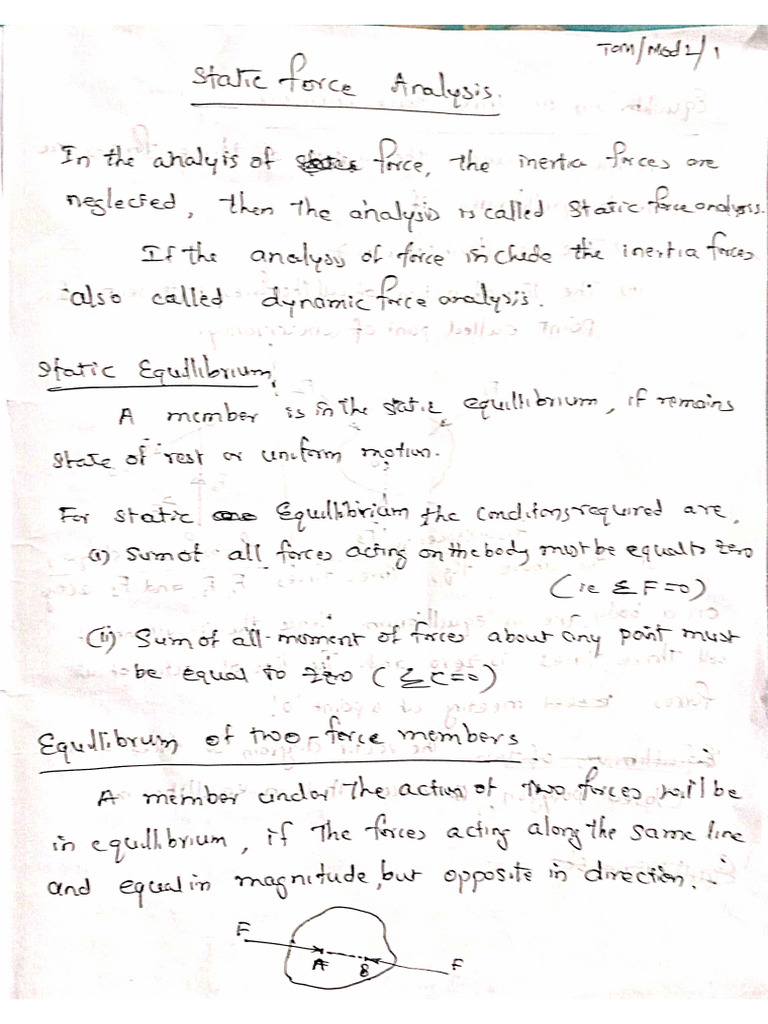 TOM/Mod2/1
Static force Analysis.
In the analyis of force, the inertia forces are
neglected, then the analysis is called Static force analysis.
If the analysis of force include the inertia forces
also called dynamic force analysis.
Static Equilibrium
A member is in the static equilibrium, if remains
state of rest or uniform motion.
For static Equilibrium the conditions required are,
(i) Sum of all forces acting on the body must be equal to zero
(ie ΣF=0)
(ii) Sum of all moment of forces about any point must
be equal to zero (ΣC=0)
Equilibrum of two-force members
A member under the action of two forces will be
in equilibrium, if the forces acting along the same line
and equal in magnitude, but opposite in direction.
F
A B
F